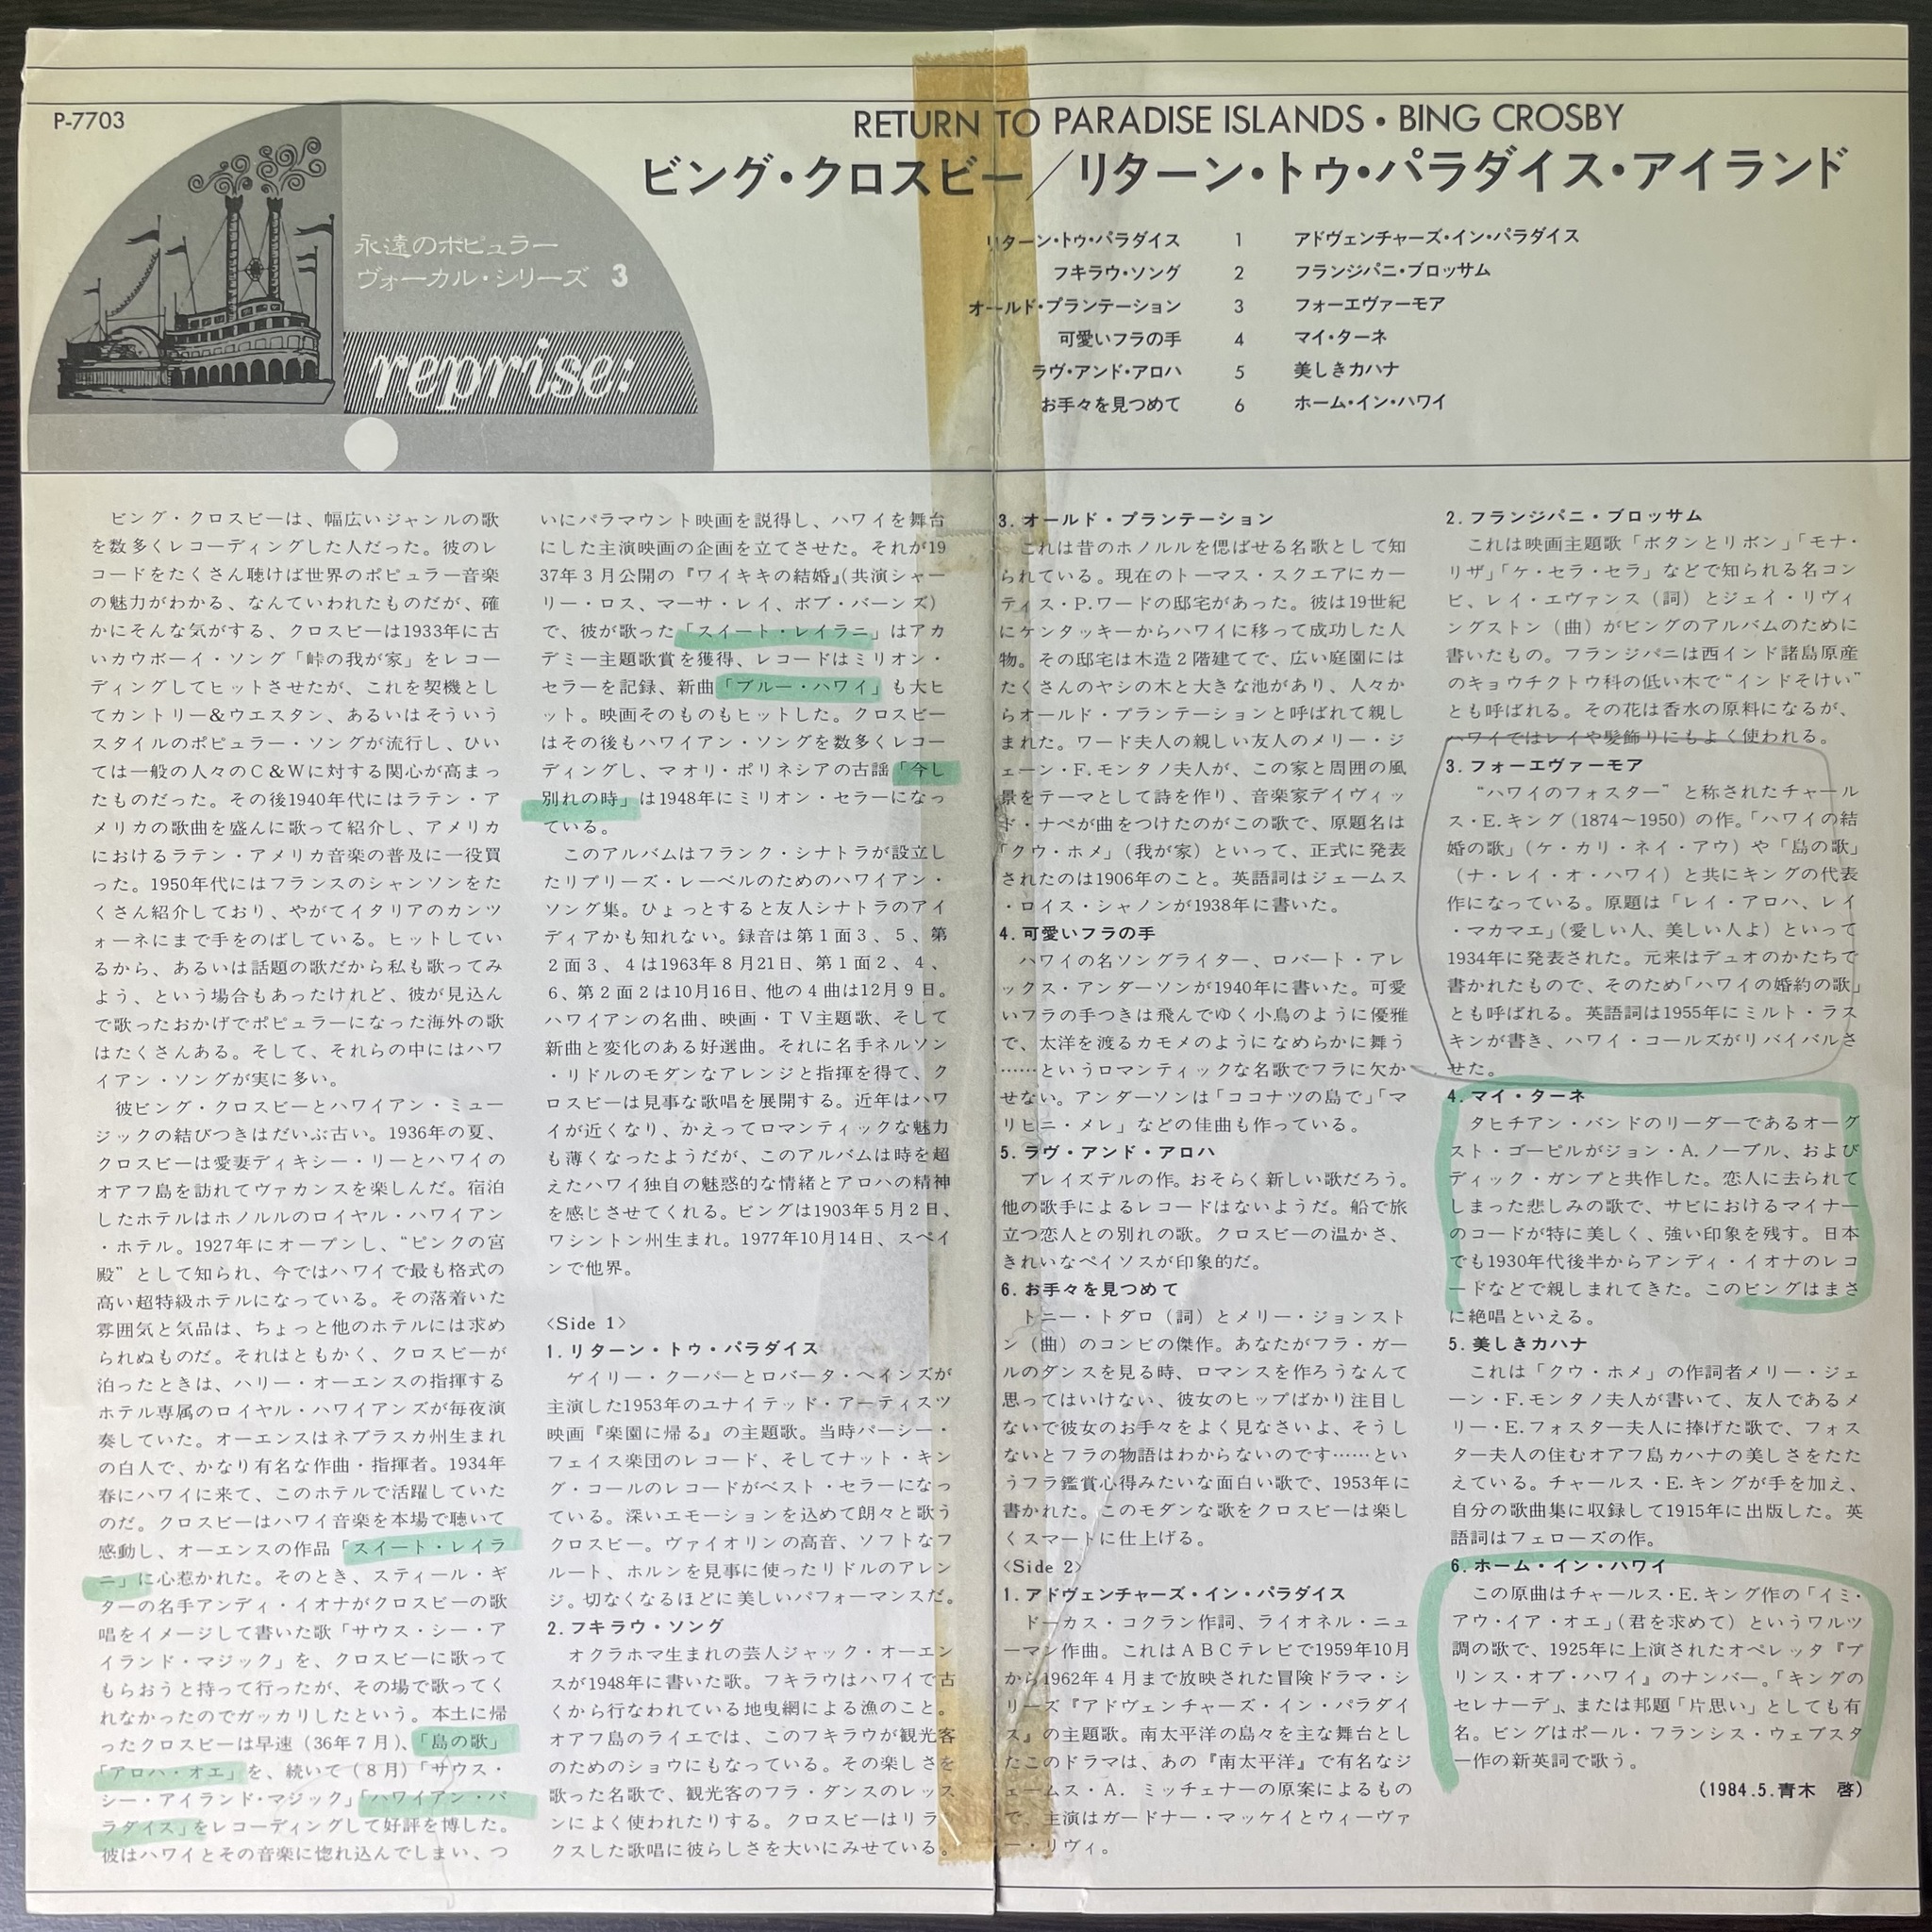 P-7703
RETURN TO PARADISE ISLANDS・BING CROSBY
ビング・クロスビー／リターン・トゥ・パラダイス・アイランド
永遠のポピュラー
ヴォーカル・シリーズ 3
reprise:
リターン・トゥ・パラダイス 1 アドヴェンチャーズ・イン・パラダイス
フキラウ・ソング 2 フランジパニ・ブロッサム
オールド・プランテーション 3 フォーエヴァーモア
可愛いフラの手 4 マイ・ターネ
ラヴ・アンド・アロハ 5 美しきカハナ
お手々を見つめて 6 ホーム・イン・ハワイ
ビング・クロスビーは、幅広いジャンルの歌
を数多くレコーディングした人だった。彼のレ
コードをたくさん聴けば世界のポピュラー音楽
の魅力がわかる、なんていわれたものだが、確
かにそんな気がする、クロスビーは1933年に古
いカウボーイ・ソング「峠の我が家」をレコー
ディングしてヒットさせたが、これを契機とし
てカントリー&ウエスタン、あるいはそういう
スタイルのポピュラー・ソングが流行し、ひい
ては一般の人々のC&Wに対する関心が高まっ
たものだった。その後1940年代にはラテン・ア
メリカの歌曲を盛んに歌って紹介し、アメリカ
におけるラテン・アメリカ音楽の普及に一役買
った。1950年代にはフランスのシャンソンをた
くさん紹介しており、やがてイタリアのカンツ
ォーネにまで手をのばしている。ヒットしてい
るから、あるいは話題の歌だから私も歌ってみ
よう、という場合もあったけれど、彼が見込ん
で歌ったおかげでポピュラーになった海外の歌
はたくさんある。そして、それらの中にはハワ
イアン・ソングが実に多い。
彼ビング・クロスビーとハワイアン・ミュー
ジックの結びつきはだいぶ古い。1936年の夏、
クロスビーは愛妻ディキシー・リーとハワイの
オアフ島を訪れてヴァカンスを楽しんだ。宿泊
したホテルはホノルルのロイヤル・ハワイアン
・ホテル。1927年にオープンし、“ピンクの宮
殿”として知られ、今ではハワイで最も格式の
高い超特級ホテルになっている。その落着いた
雰囲気と気品は、ちょっと他のホテルには求め
られぬものだ。それはともかく、クロスビーが
泊ったときは、ハリー・オーエンスの指揮する
ホテル専属のロイヤル・ハワイアンズが毎夜演
奏していた。オーエンスはネブラスカ州生まれ
の白人で、かなり有名な作曲・指揮者。1934年
春にハワイに来て、このホテルで活躍していた
のだ。クロスビーはハワイ音楽を本場で聴いて
感動し、オーエンスの作品「スイート・レイラ
ニ」に心惹かれた。そのとき、スティール・ギ
ターの名手アンディ・イオナがクロスビーの歌
唱をイメージして書いた歌「サウス・シー・ア
イランド・マジック」を、クロスビーに歌って
もらおうと持って行ったが、その場で歌ってく
れなかったのでガッカリしたという。本土に帰
ったクロスビーは早速（36年7月）、「島の歌」
「アロハ・オエ」を、続いて（8月）「サウス・
シー・アイランド・マジック」「ハワイアン・パ
ラダイス」をレコーディングして好評を博した。
彼はハワイとその音楽に惚れ込んでしまい、つ
いにパラマウント映画を説得し、ハワイを舞台
にした主演映画の企画を立てさせた。それが19
37年3月公開の『ワイキキの結婚』（共演シャー
リー・ロス、マーサ・レイ、ボブ・バーンズ）
で、彼が歌った「スイート・レイラニ」はアカ
デミー主題歌賞を獲得、レコードはミリオン・
セラーを記録、新曲「ブルー・ハワイ」も大ヒ
ット。映画そのものもヒットした。クロスビー
はその後もハワイアン・ソングを数多くレコー
ディングし、マオリ・ポリネシアの古謡「今し
別れの時」は1948年にミリオン・セラーになっ
ている。
このアルバムはフランク・シナトラが設立し
たリプリーズ・レーベルのためのハワイアン・
ソング集。ひょっとすると友人シナトラのアイ
ディアかも知れない。録音は第1面3、5、第
2面3、4は1963年8月21日、第1面2、4、
6、第2面2は10月16日、他の4曲は12月9日。
ハワイアンの名曲、映画・TV主題歌、そして
新曲と変化のある好選曲。それに名手ネルソン
・リドルのモダンなアレンジと指揮を得て、ク
ロスビーは見事な歌唱を展開する。近年はハワ
イが近くなり、かえってロマンティックな魅力
も薄くなったようだが、このアルバムは時を超
えたハワイ独自の魅惑的な情緒とアロハの精神
を感じさせてくれる。ビングは1903年5月2日、
ワシントン州生まれ。1977年10月14日、スペイ
ンで他界。
〈Side 1〉
1. リターン・トゥ・パラダイス
ゲイリー・クーパーとロバータ・ヘインズが
主演した1953年のユナイテッド・アーティスツ
映画『楽園に帰る』の主題歌。当時パーシー・
フェイス楽団のレコード、そしてナット・キン
グ・コールのレコードがベスト・セラーになっ
ている。深いエモーションを込めて朗々と歌う
クロスビー。ヴァイオリンの高音、ソフトなフ
ルート、ホルンを見事に使ったリドルのアレン
ジ。切なくなるほどに美しいパフォーマンスだ。
2. フキラウ・ソング
オクラホマ生まれの芸人ジャック・オーエン
スが1948年に書いた歌。フキラウはハワイで古
くから行なわれている地曳網による漁のこと。
オアフ島のライエでは、このフキラウが観光客
のためのショウにもなっている。その楽しさを
歌った名歌で、観光客のフラ・ダンスのレッス
ンによく使われたりする。クロスビーはリラッ
クスした歌唱に彼らしさを大いにみせている。
3. オールド・プランテーション
これは昔のホノルルを偲ばせる名歌として知
られている。現在のトーマス・スクエアにカー
ティス・P.ワードの邸宅があった。彼は19世紀
にケンタッキーからハワイに移って成功した人
物。その邸宅は木造2階建てで、広い庭園には
たくさんのヤシの木と大きな池があり、人々か
らオールド・プランテーションと呼ばれて親し
まれた。ワード夫人の親しい友人のメリー・ジ
ェーン・F.モンタノ夫人が、この家と周囲の風
景をテーマとして詩を作り、音楽家デイヴィッ
ド・ナペが曲をつけたのがこの歌で、原題名は
「クウ・ホメ」（我が家）といって、正式に発表
されたのは1906年のこと。英語詞はジェームス
・ロイス・シャノンが1938年に書いた。
4. 可愛いフラの手
ハワイの名ソングライター、ロバート・アレ
ックス・アンダーソンが1940年に書いた。可愛
いフラの手つきは飛んでゆく小鳥のように優雅
で、太洋を渡るカモメのようになめらかに舞う
……というロマンティックな名歌でフラに欠か
せない。アンダーソンは「ココナツの島で」「マ
リヒニ・メレ」などの佳曲も作っている。
5. ラヴ・アンド・アロハ
ブレイズデルの作。おそらく新しい歌だろう。
他の歌手によるレコードはないようだ。船で旅
立つ恋人との別れの歌。クロスビーの温かさ、
きれいなペイソスが印象的だ。
6. お手々を見つめて
トニー・トダロ（詞）とメリー・ジョンスト
ン（曲）のコンビの傑作。あなたがフラ・ガー
ルのダンスを見る時、ロマンスを作ろうなんて
思ってはいけない、彼女のヒップばかり注目し
ないで彼女のお手々をよく見なさいよ、そうし
ないとフラの物語はわからないのです……とい
うフラ鑑賞心得みたいな面白い歌で、1953年に
書かれた。このモダンな歌をクロスビーは楽し
くスマートに仕上げる。
〈Side 2〉
1. アドヴェンチャーズ・イン・パラダイス
ドーカス・コクラン作詞、ライオネル・ニュ
ーマン作曲。これはABCテレビで1959年10月
から1962年4月まで放映された冒険ドラマ・シ
リーズ『アドヴェンチャーズ・イン・パラダイ
ス』の主題歌。南太平洋の島々を主な舞台とし
たこのドラマは、あの『南太平洋』で有名なジ
ェームス・A. ミッチェナーの原案によるもの
で、主演はガードナー・マッケイとウィーヴァ
ー・リヴィ。
2. フランジパニ・ブロッサム
これは映画主題歌「ボタンとリボン」「モナ・
リザ」「ケ・セラ・セラ」などで知られる名コン
ビ、レイ・エヴァンス（詞）とジェイ・リヴィ
ングストン（曲）がビングのアルバムのために
書いたもの。フランジパニは西インド諸島原産
のキョウチクトウ科の低い木で“インドそけい”
とも呼ばれる。その花は香水の原料になるが、
ハワイではレイや髪飾りにもよく使われる。
3. フォーエヴァーモア
“ハワイのフォスター”と称されたチャール
ス・E.キング（1874〜1950）の作。「ハワイの結
婚の歌」（ケ・カリ・ネイ・アウ）や「島の歌」
（ナ・レイ・オ・ハワイ）と共にキングの代表
作になっている。原題は「レイ・アロハ、レイ
・マカマエ」（愛しい人、美しい人よ）といって
1934年に発表された。元来はデュオのかたちで
書かれたもので、そのため「ハワイの婚約の歌」
とも呼ばれる。英語詞は1955年にミルト・ラス
キンが書き、ハワイ・コールズがリバイバルさ
せた。
4. マイ・ターネ
タヒチアン・バンドのリーダーであるオーグ
スト・ゴーピルがジョン・A.ノーブル、および
ディック・ガンプと共作した。恋人に去られて
しまった悲しみの歌で、サビにおけるマイナー
のコードが特に美しく、強い印象を残す。日本
でも1930年代後半からアンディ・イオナのレコ
ードなどで親しまれてきた。このビングはまさ
に絶唱といえる。
5. 美しきカハナ
これは「クウ・ホメ」の作詞者メリー・ジェ
ーン・F.モンタノ夫人が書いて、友人であるメ
リー・E.フォスター夫人に捧げた歌で、フォス
ター夫人の住むオアフ島カハナの美しさをたた
えている。チャールス・E.キングが手を加え、
自分の歌曲集に収録して1915年に出版した。英
語詞はフェローズの作。
6. ホーム・イン・ハワイ
この原曲はチャールス・E.キング作の「イミ・
アウ・イア・オエ」（君を求めて）というワルツ
調の歌で、1925年に上演されたオペレッタ『プ
リンス・オブ・ハワイ』のナンバー。「キングの
セレナーデ」、または邦題「片思い」としても有
名。ビングはポール・フランシス・ウェブスタ
ー作の新英詞で歌う。
（1984.5.青木 啓）